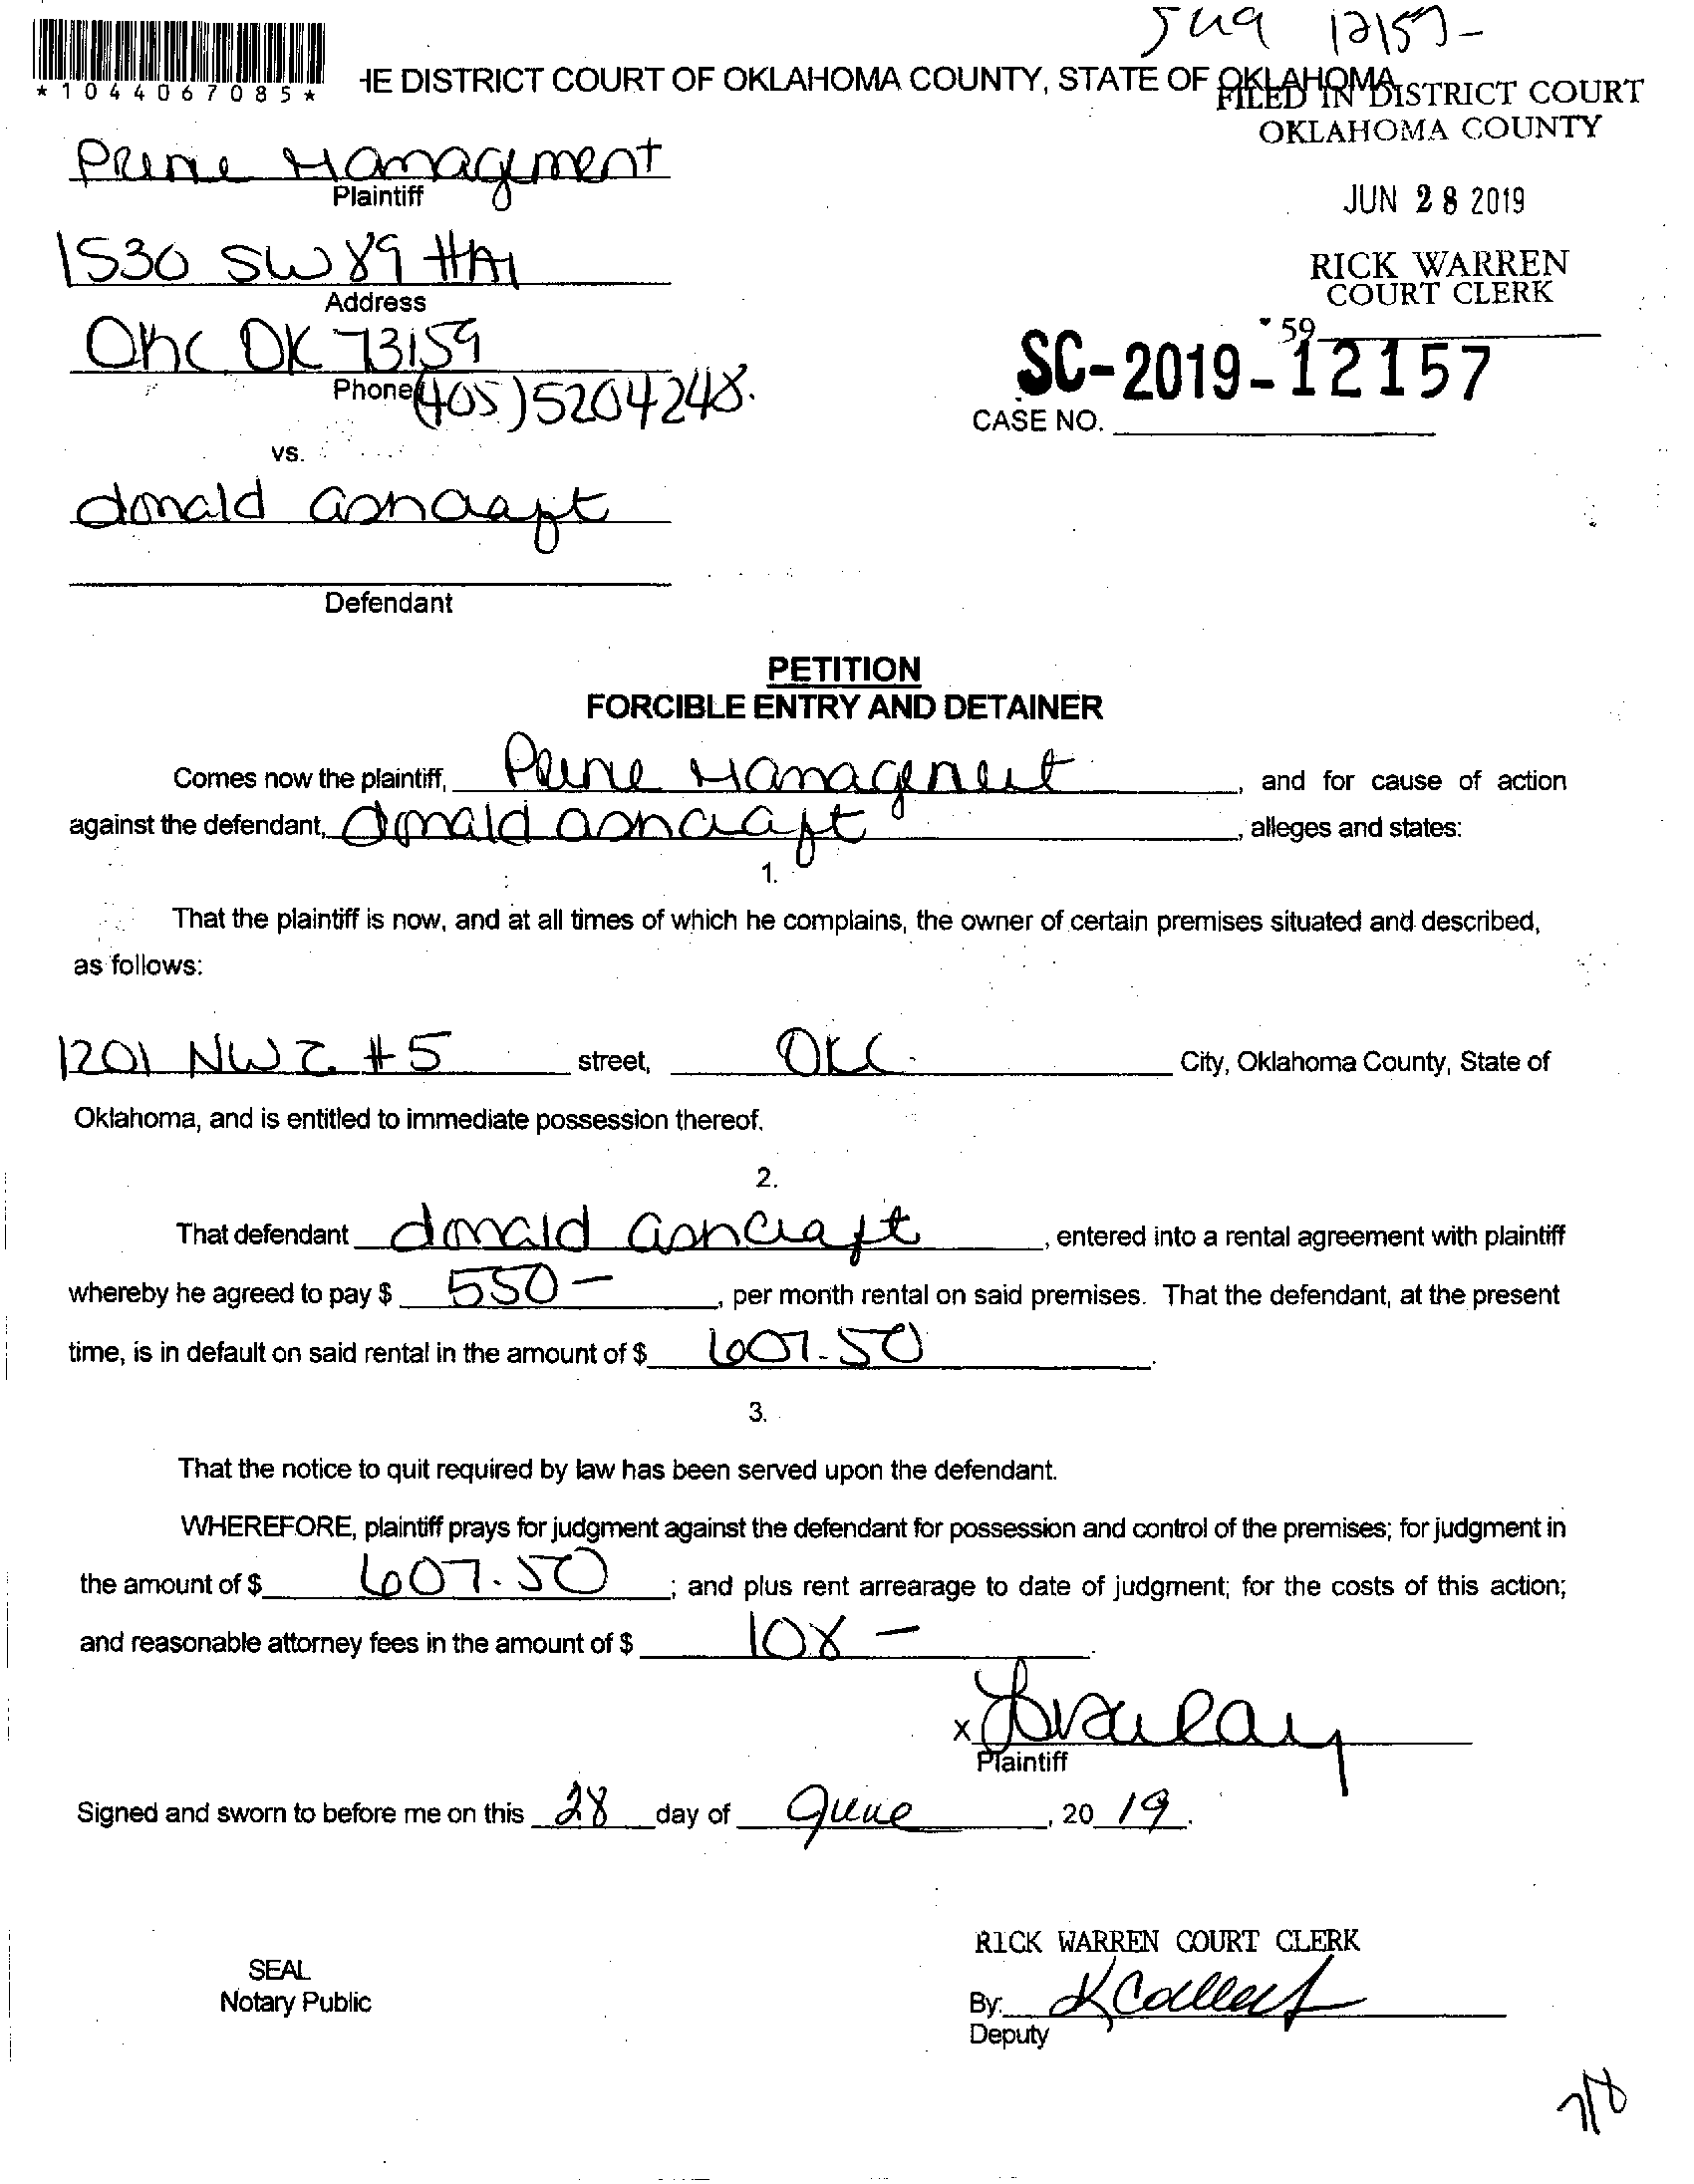 5ua 12157-
*1044067085*
HE DISTRICT COURT OF OKLAHOMA COUNTY, STATE OF OKLAHOMA
FILED IN DISTRICT COURT
OKLAHOMA COUNTY
Prime Management
Plaintiff
JUN 28 2019
1530 SW 89 #A1
Address
RICK WARREN
COURT CLERK
Okc OK 73159
59
Phone (405) 5204248.
SC-2019-12157
CASE NO.
vs.
donald ashcraft
Defendant
PETITION
FORCIBLE ENTRY AND DETAINER
Comes now the plaintiff, Prime Management, and for cause of action
against the defendant, donald ashcraft, alleges and states:
1.
That the plaintiff is now, and at all times of which he complains, the owner of certain premises situated and described,
as follows:
1201 NW 2 #5 street, OKC City, Oklahoma County, State of
Oklahoma, and is entitled to immediate possession thereof.
2.
That defendant donald ashcraft, entered into a rental agreement with plaintiff
whereby he agreed to pay $ 550-, per month rental on said premises. That the defendant, at the present
time, is in default on said rental in the amount of $ 607.50.
3.
That the notice to quit required by law has been served upon the defendant.
WHEREFORE, plaintiff prays for judgment against the defendant for possession and control of the premises; for judgment in
the amount of $ 607.50; and plus rent arrearage to date of judgment; for the costs of this action;
and reasonable attorney fees in the amount of $ 108-.
X
Plaintiff
Signed and sworn to before me on this 28 day of June, 2019.
RICK WARREN COURT CLERK
SEAL
Notary Public
By:
Deputy
7/8